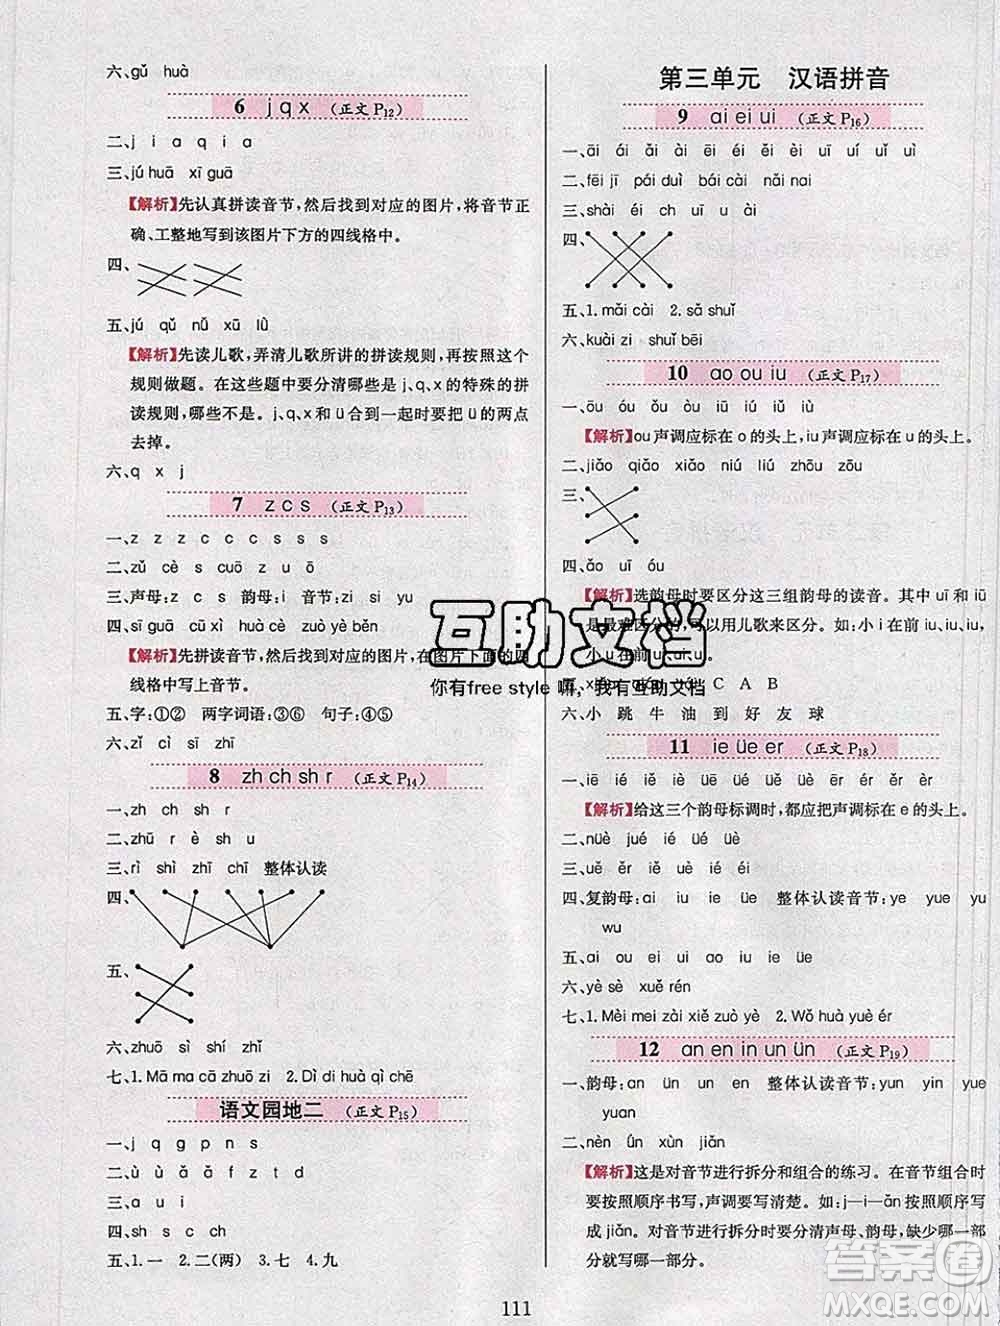 六、gǔ huà
6 j q x (正文P12)
二、j i a q i a
三、jú huā xī guā
【解析】先认真拼读音节,然后找到对应的图片,将音节正
确、工整地写到该图片下方的四线格中。
四、
五、jú qǔ nǚ xū lǜ
【解析】先读儿歌,弄清儿歌所讲的拼读规则,再按照这个
规则做题。在这些题中要分清哪些是j、q、x的特殊的拼
读规则,哪些不是。j、q、x和ü合到一起时要把ü的两点
去掉。
六、q x j
7 z c s (正文P13)
一、z z z c c c s s s
二、zǔ cè s cuō z ō
三、声母:z c s 韵母:i 音节:zu si yu
四、sī guā cū xì huà cè zuò yè běn
【解析】先拼读音节,然后找到对应的图片,在图片下面的四
线格中写上音节。
五、字:①② 两字词语:③⑥ 句子:④⑤
六、zǐ cì sī zhī
8 zh ch sh r (正文P14)
一、zh ch sh r
二、zhū r è sh u
三、rì shì zhī chī 整体认读
四、
五、
六、zhuō sì shí zhǐ
七、1.Mā ma cā zhuō zi 2.Dì di huà qì chē
语文园地二 (正文P15)
一、j q g p n s
二、ù ù ǎ ǎ f z t d
三、a u i
四、sh s c ch
五、1.一 2.二(两) 3.七 4.九
第三单元 汉语拼音
9 ai ei ui (正文P16)
一、āi ái ǎi ài ēi éi ěi èi uī uí uǐ uì
二、fēi jī pái duì bái cài nǎi nai
三、shài éi ch uī u ài
四、
五、1.mǎi cài 2.sǎ shuǐ
六、kuài zi shuǐ bēi
10 ao ou iu (正文P17)
一、ōu óu ǒu òu iū iú iǔ iù
【解析】ou声调应标在o的头上,iu声调应标在u的头上。
二、jiǎo qiǎo xiǎo niú liú zhōu zōu
三、
四、ǎo uī óu
【解析】选韵母时要区分这三组韵母的读音。其中uī和iū
是最难区分的,可以用儿歌来区分。如:小i在前iu、iu、iu,
小u在前ui、ui、ui。
C A B
六、小 跳 牛 油 到 好 友 球
11 ie üe er (正文P18)
一、iē ié iě iè üē üé üě üè ēr ér ěr èr
【解析】给这三个韵母标调时,都应把声调标在e的头上。
二、nüè jué ié üé üè
三、uě ěr iě uè iě iè
四、复韵母:ai iu ie üe 整体认读音节:ye yue yu
wu
五、ai ou ei ui ao iu ie üe
六、yè sè xuě rén
七、1.Mèi mei zài xiě zuò yè 2.Wǒ huà yuè ér
12 an en in un ün (正文P19)
一、韵母:an ün un en 整体认读音节:yun yin yue
yuan
二、nèn ǖn xùn jiǎn
【解析】这是对音节进行拆分和组合的练习。在音节组合时
要按照顺序书写,声调要写清楚。如:j—i—ǎn应按顺序写
成jiǎn。对音节进行拆分时要分清声母、韵母,缺少哪一部
分就写哪一部分。
111
互助文档
你有free style 嘛，我有互助文档
答案圈
MXQE.COM